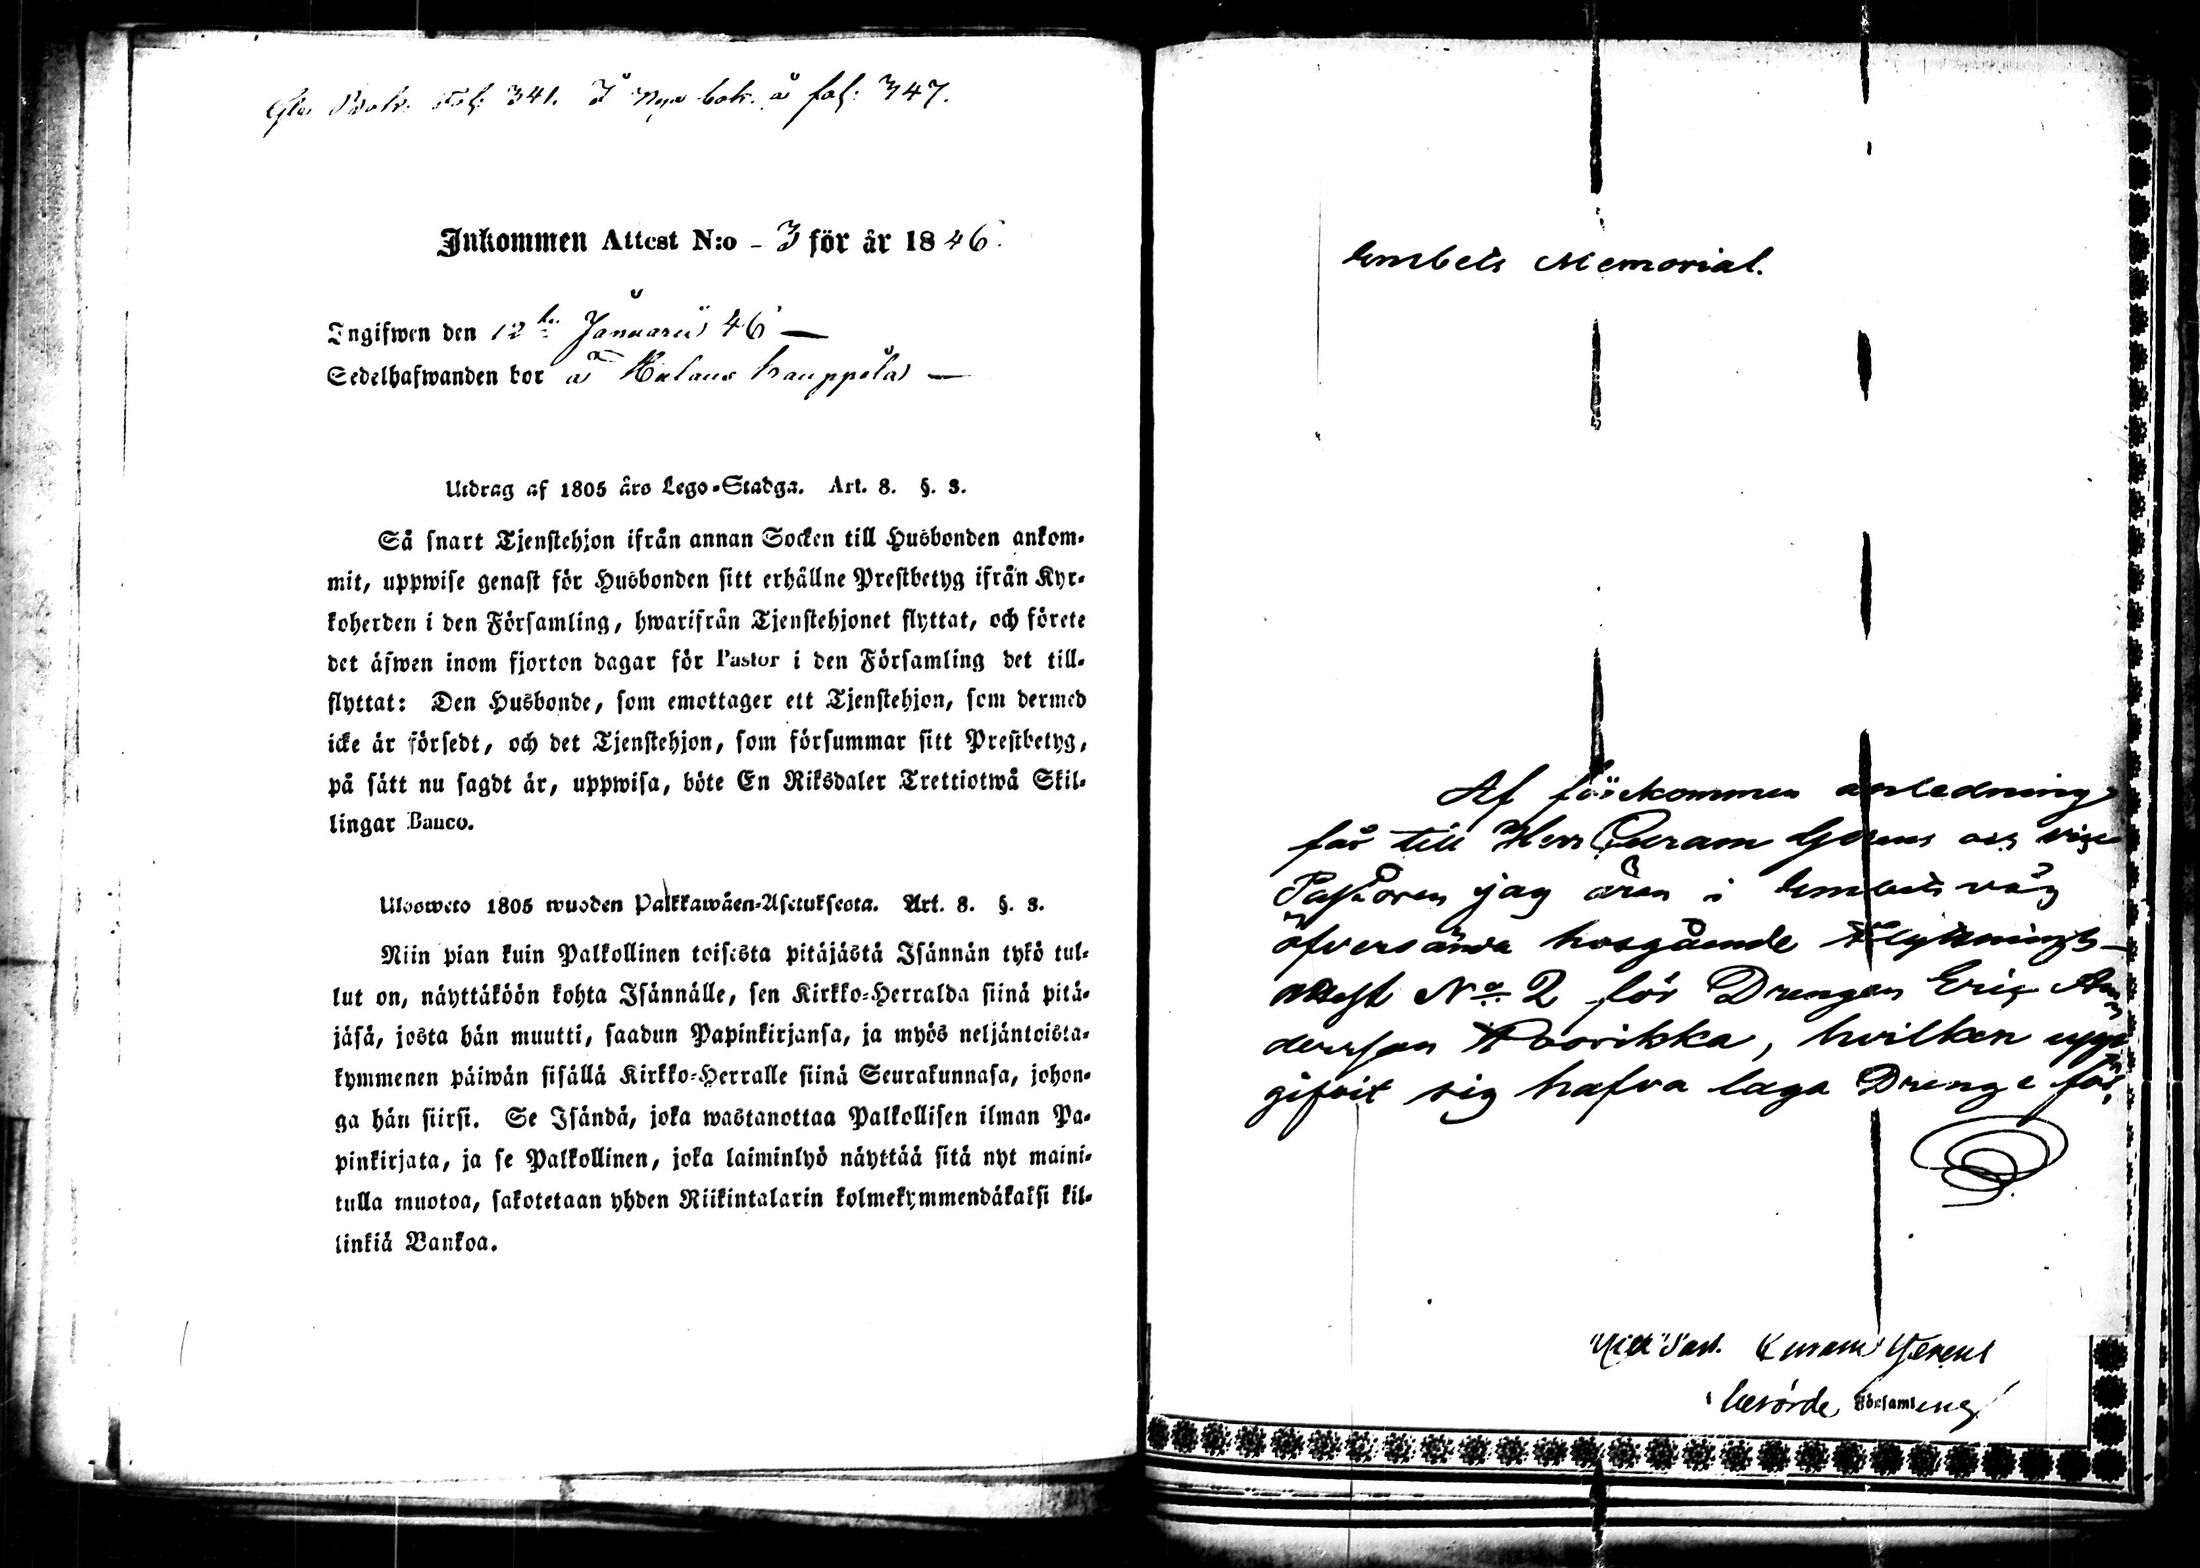 Gla Bok. Fol: 341. I Nya bok. å fol: 347.
Inkommen Attest N:o - 3 för år 1846.
Ingifwen den 12te Januarii 46 —
Sedelhafwanden bor å kauppila —
Utdrag af 1805 års Lego-Stadga. Art. 8. §. 3.
Så snart Tjenstehjon ifrån annan Socken till Husbonden ankom-
mit, uppwise genast för Husbonden sitt erhållne Prestbetyg ifrån Kyr-
koherden i den Församling, hwarifrån Tjenstehjonet flyttat, och förete
det äfwen inom fjorton dagar för Pastor i den Församling det till-
flyttat: Den Husbonde, som emottager ett Tjenstehjon, som dermed
icke är försedt, och det Tjenstehjon, som försummar sitt Prestbetyg,
på sätt nu sagdt är, uppwisa, böte En Riksdaler Trettiotwå Skil-
lingar Banco.
Ulosweto 1805 wuoden Palkkawäen-Asetuksesta. Art. 8. §. 3.
Niin pian kuin Palkollinen toisesta pitäjästä Isännän tykö tul-
lut on, näyttäköön kohta Isännälle, sen Kirkko-Herralda siinä pitä-
jäsä, josta hän muutti, saadun Papinkirjansa, ja myös neljäntoista-
kymmenen päiwän sisällä Kirkko-Herralle siinä Seurakunnasa, johon-
ga hän siirsi. Se Isändä, joka wastanottaa Palkollisen ilman Pa-
pinkirjata, ja se Palkollinen, joka laiminlyö näyttää sitä nyt maini-
tulla muotoa, sakotetaan yhden Riikintalarin kolmekymmendäkaksi kil-
linkiä Bankoa.
Embets Memorial.
Af förekommen anledning
får till Herr Curam Gerens och vice
Pastoren jag ären i Embets väg
öfversända hosgående Flyttnings-
attest No 2 för Drengen Eric An-
dersson Roorikka, hvilken upp-
gifvit sig hafva laga Drenge för-
Till Past. Curam Gerens
i församling